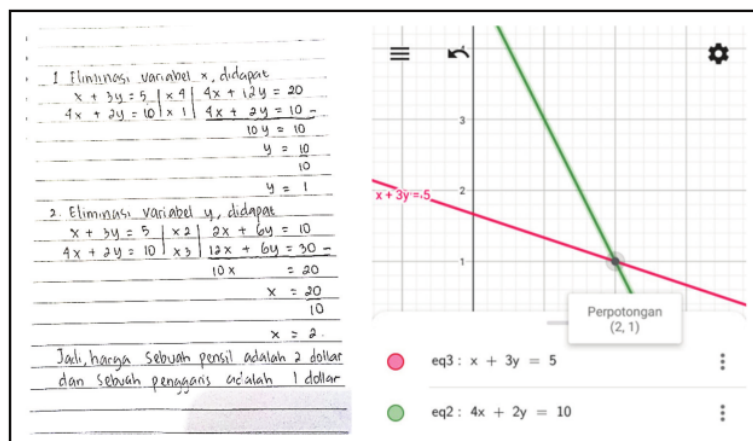 1 Eliminasi variabel x, didapat
x + 3y = 5 | x 4 | 4x + 12y = 20
4x + 2y = 10 | x 1 | 4x + 2y = 10 -
10 y = 10
y = 10
10
y = 1
2. Eliminasi variabel y, didapat
x + 3y = 5 | x 2 | 2x + 6y = 10
4x + 2y = 10 | x 3 | 12x + 6y = 30 -
10 x = 20
x = 20
10
x = 2.
Jadi, harga sebuah pensil adalah 2 dollar
dan sebuah penggaris adalah 1 dollar
3
2
x + 3y = 5
1
Perpotongan
(2, 1)
eq3 : x + 3y = 5
eq2 : 4x + 2y = 10